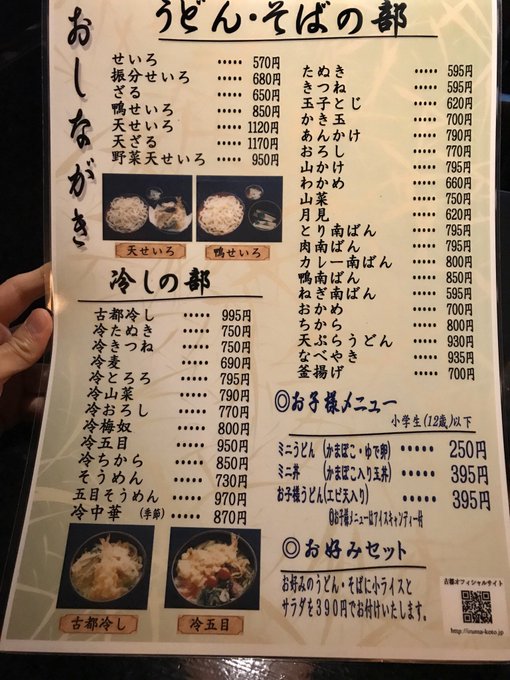 おしながき
うどん・そばの部
せいろ ····· 570円
振分せいろ ····· 680円
ざる ····· 650円
鴨せいろ ····· 850円
天せいろ ····· 1120円
天ざる ····· 1170円
野菜天せいろ ····· 950円
天せいろ
鴨せいろ
冷しの部
古都冷し ····· 995円
冷たぬき ····· 750円
冷きつね ····· 750円
冷麦 ····· 690円
冷とろろ ····· 795円
冷山菜 ····· 790円
冷おろし ····· 770円
冷梅奴 ····· 800円
冷五目 ····· 950円
冷ちから ····· 850円
そうめん ····· 730円
五目そうめん ····· 970円
冷中華 (季節) ····· 870円
古都冷し
冷五目
たぬき ····· 595円
きつね ····· 595円
玉子とじ ····· 620円
かき玉 ····· 700円
あんかけ ····· 790円
おろし ····· 770円
山かけ ····· 795円
わかめ ····· 660円
山菜 ····· 750円
月見 ····· 620円
とり南ばん ····· 795円
肉南ばん ····· 795円
カレー南ばん ····· 800円
鴨南ばん ····· 850円
ねぎ南ばん ····· 595円
おかめ ····· 700円
ちから ····· 800円
天ぷらうどん ····· 930円
なべやき ····· 935円
釜揚げ ····· 700円
◎お子様メニュー
小学生(12歳)以下
ミニうどん (かまぼこ・ゆで卵) ····· 250円
ミニ丼 (かまぼこ入り玉丼) ····· 395円
お子様うどん(エビ天入り) ····· 395円
◎お子様メニューはアイスキャンディー付
◎お好みセット
お好みのうどん・そばに小ライスと
サラダを390円でお付けいたします。
古都オフィシャルサイト
http://iruma-koto.jp